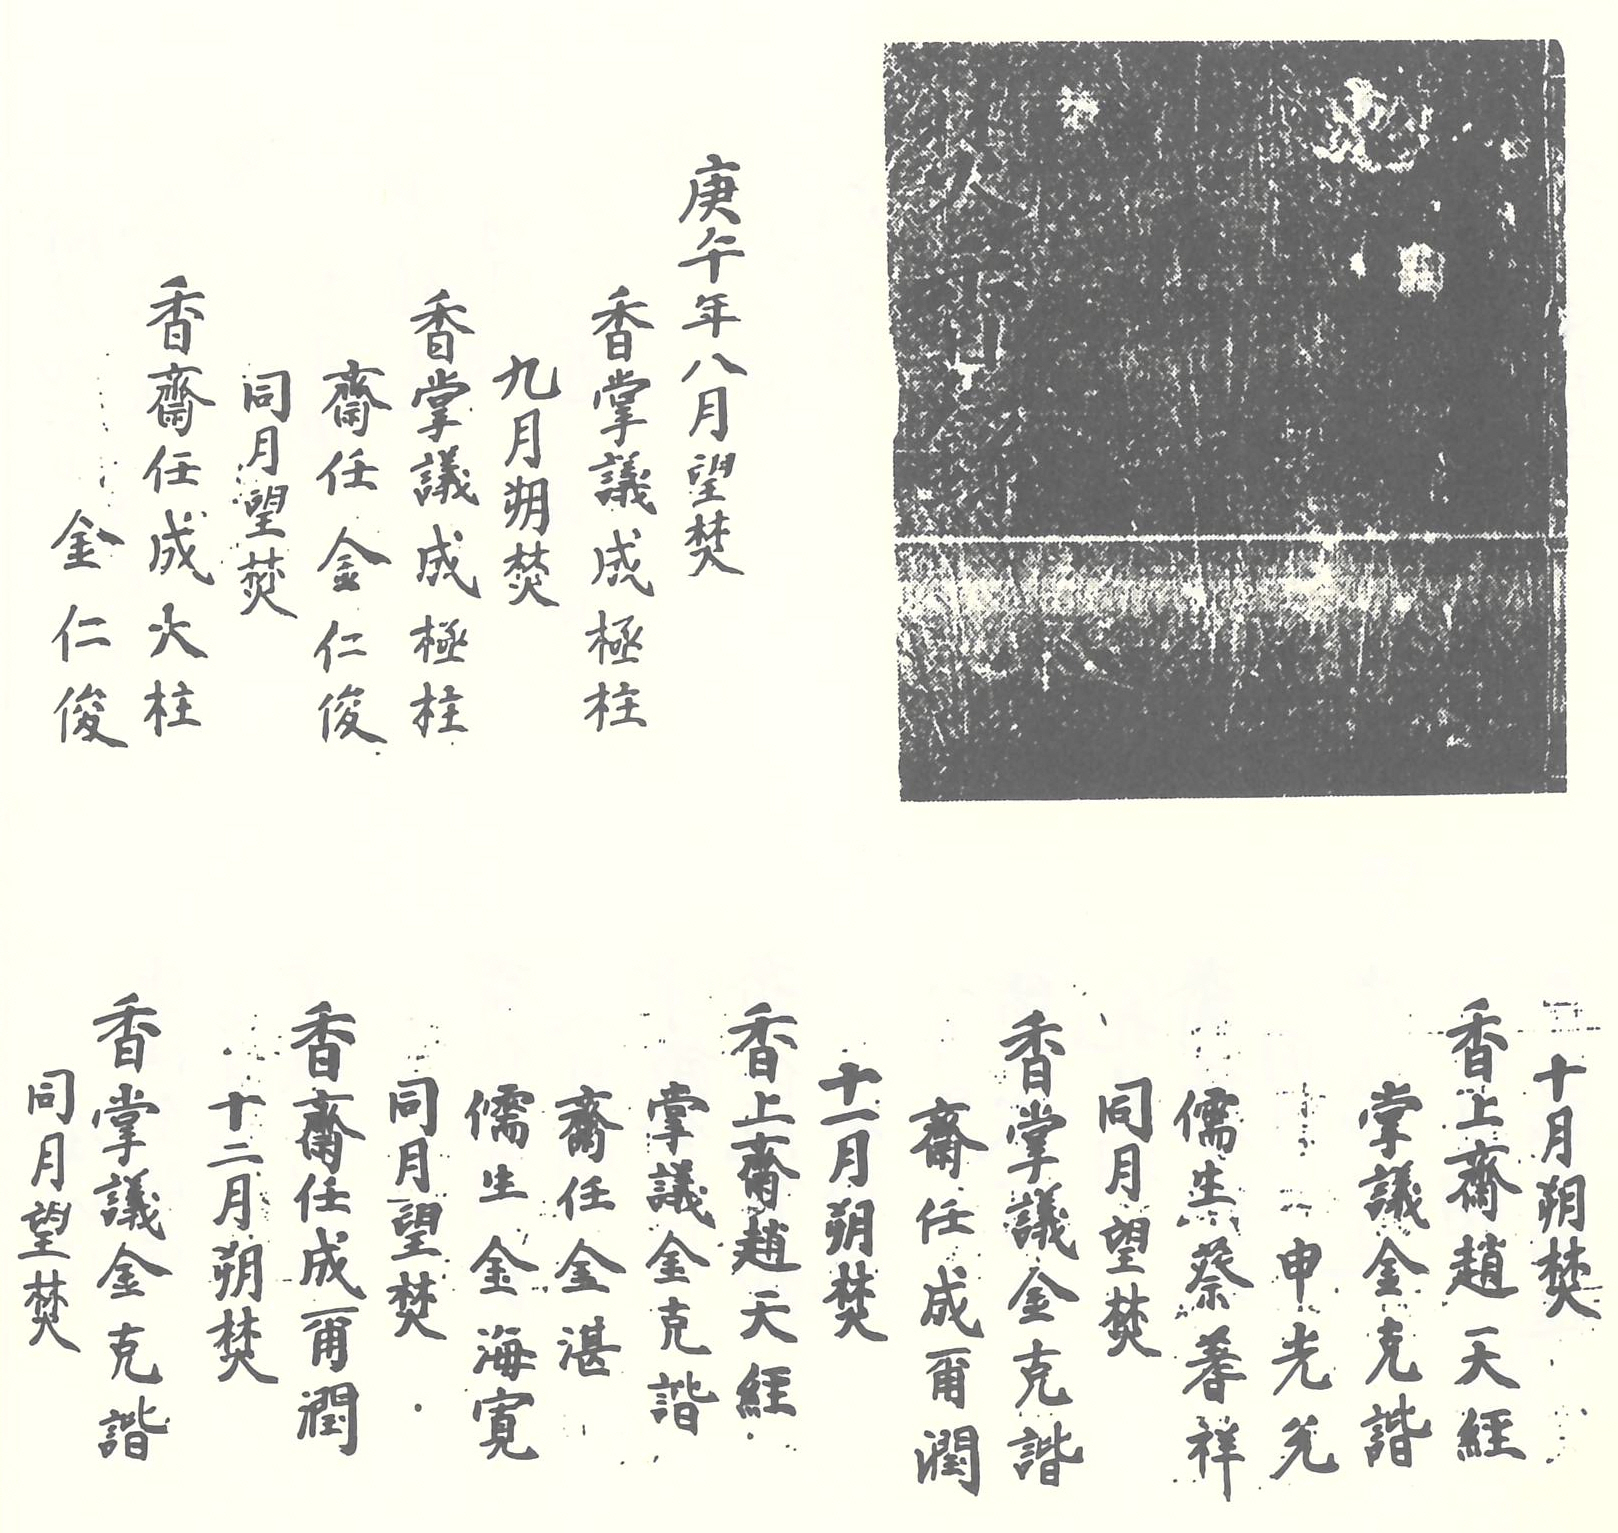 庚午年八月望焚
香掌議成極柱
九月朔焚
香掌議成極柱
齋任金仁俊
同月望焚
香齋任成大柱
金仁俊
十月朔焚
香上齋趙天經
掌議金克諧
申光
儒生蔡蓍祥
同月望焚
香掌議金克諧
齋任成爾潤
十一月朔焚
香上齋趙天經
掌議金克諧
齋任金湛
儒生金海寬
同月望焚
香齋任成爾潤
十二月朔焚
香掌議金克諧
同月望焚